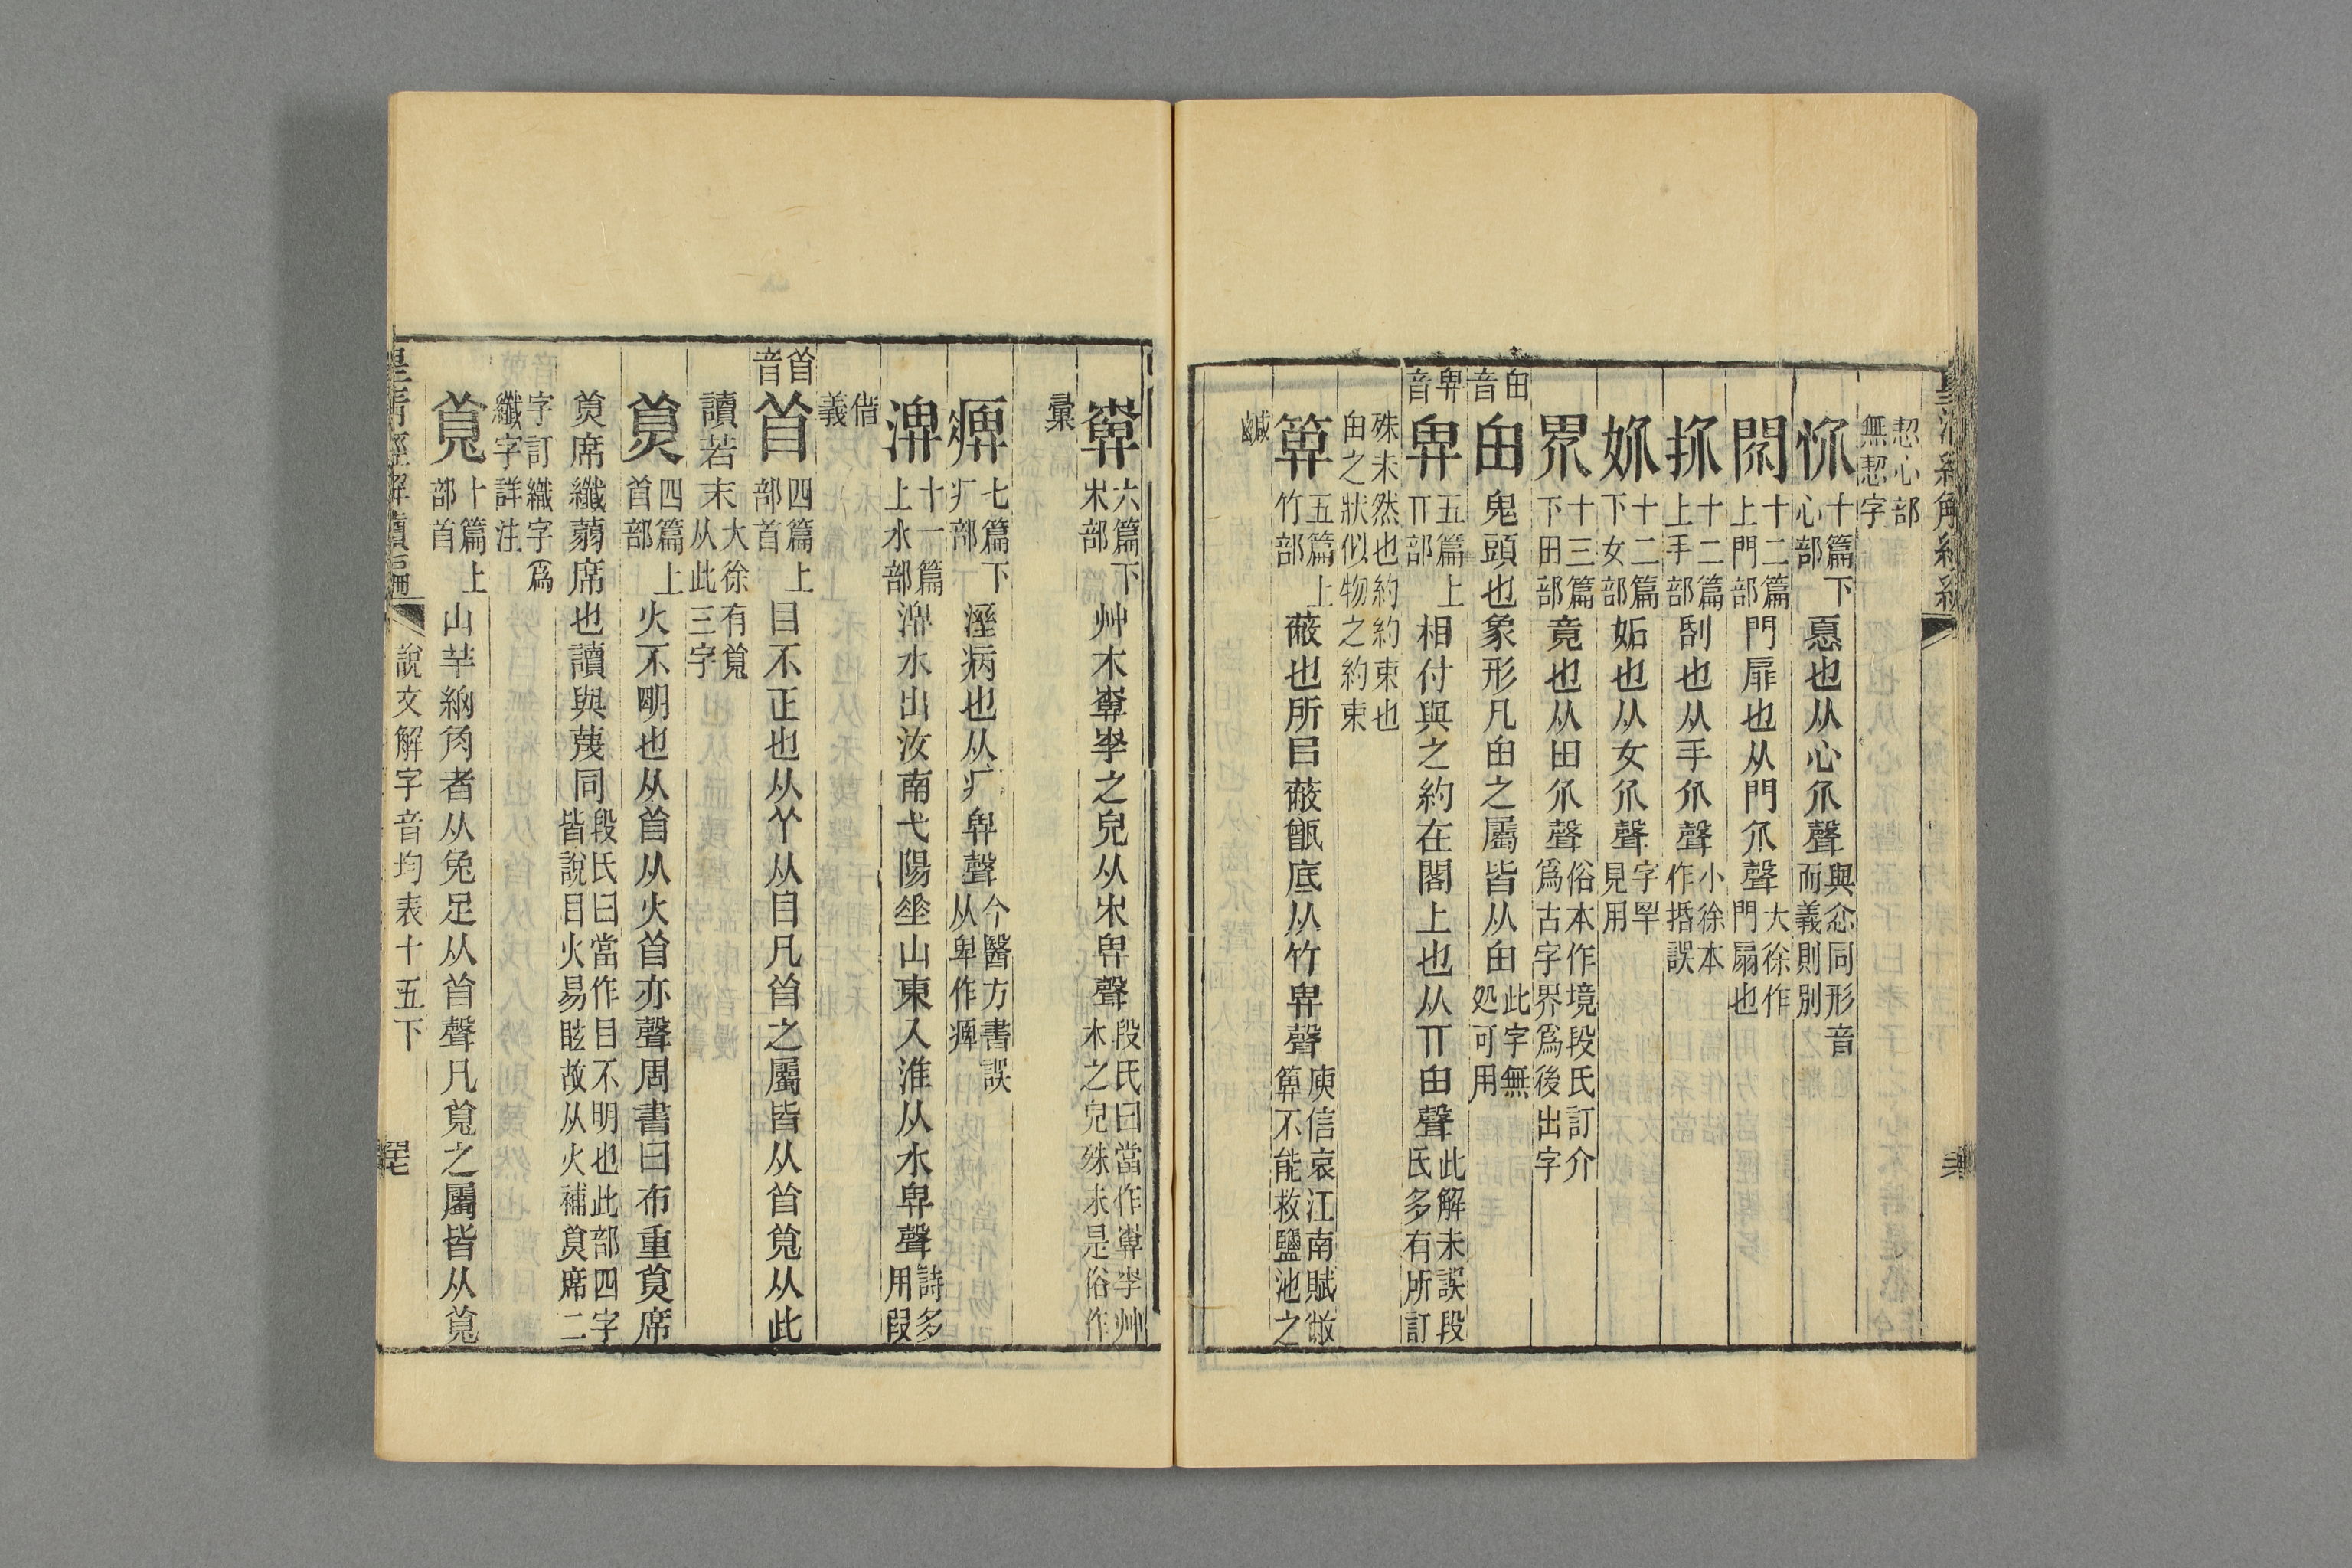 恝心部
無恝字
㤅十篇下心部惪也从心介聲與忿同形音而義則別
閖十二篇上門部門扉也从門介聲大徐作門扇也
扴十二篇上手部刮也从手介聲小徐本作㨯誤
妎十二篇下女部妬也从女介聲字罕見用
界十三篇下田部竟也从田介聲俗本作境段氏訂介爲古字界爲後出字
甶音
甶鬼頭也象形凡甶之屬皆从甶此字無処可用
畀音
畀五篇上丌部相付與之約在閣上也从丌甶聲此解未誤段氏多有所訂
殊未然也約約束也
甶之狀似物之約束
箅五篇上竹部蔽也所㠯蔽甑底从竹畀聲庾信哀江南賦敝箅不能救鹽池之
鹹
㯻六篇下𣎵部艸木㯻孛之皃从𣎵畀聲段氏曰當作㯻孛艸木之皃殊未是俗作
彙
痹七篇下疒部溼病也从疒畀聲今醫方書誤从卑作痺
淠十一篇上水部淠水出汝南弋陽垂山東入淮从水畀聲詩多用叚
偕
義
𥄕音
𥄕四篇上部首目不正也从𦫳从目凡𥄕之屬皆从𥄕莧从此
讀若末大徐有莧从此三字
𦭝四篇上𥄕部火不朙也从𥄕从火𥄕亦聲周書曰布重𦭝席
𦭝席纖蒻席也讀與蔑同段氏曰當作目不明也此部四字皆說目火易眩故从火補𦭝席二
字訂織字爲
纖字詳注
莧十篇上部首山羊細角者从兔足从𥄕聲凡莧之屬皆从莧
皇清經解續編
說文解字音均表十五下